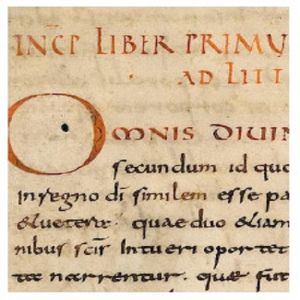 INCP LIBER PRIMU
AD LITT
OMNIS DIUIN
secundum id quo
in regno di similem esse pa
& uetera. quae duo etiam
nibus scis Intueri oportet
tae narrentur. quae fut